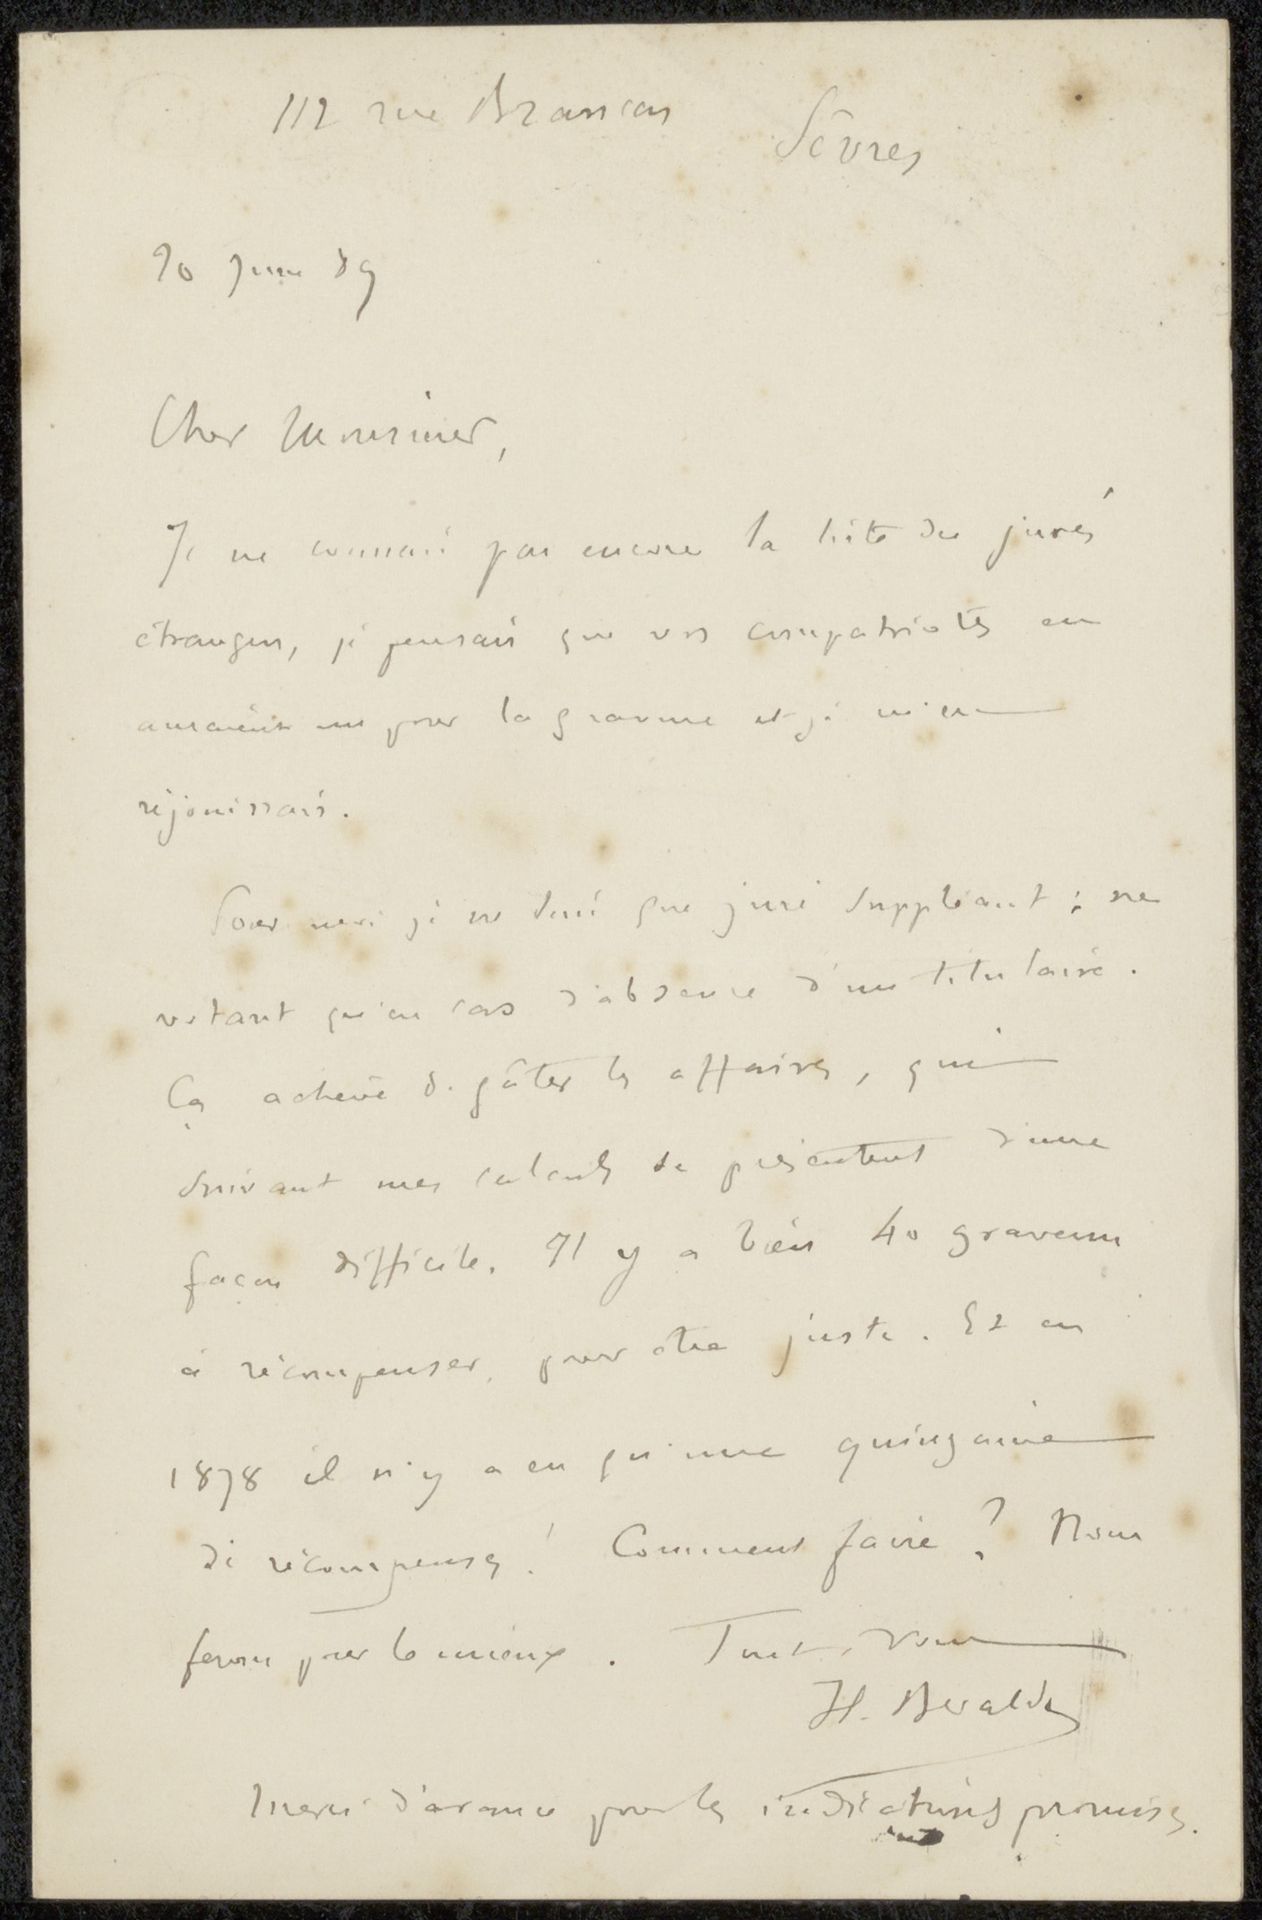 112 rue Brancas
Sèvres
20 Juin 89
Cher Monsieur,
Je ne connais pas encore la liste des jurés
étrangers, je pensais que vos compatriotes en
auraient un pour la gravure et je m'en
réjouissais.
Pour moi je ne suis que juré suppléant : ne
votant qu'en cas d'absence d'un titulaire.
Ça achève de gâter les affaires, qui
suivant mes calculs se présentent d'une
façon difficile. Il y a bien 40 graveurs
à récompenser, pour être juste. Et en
1878 il n'y a eu qu'une quinzaine
de récompenses ! Comment faire ? Nous
ferons pour le mieux. Tout à vous
H. Beraldi
Merci d'avance pour les indications promises.